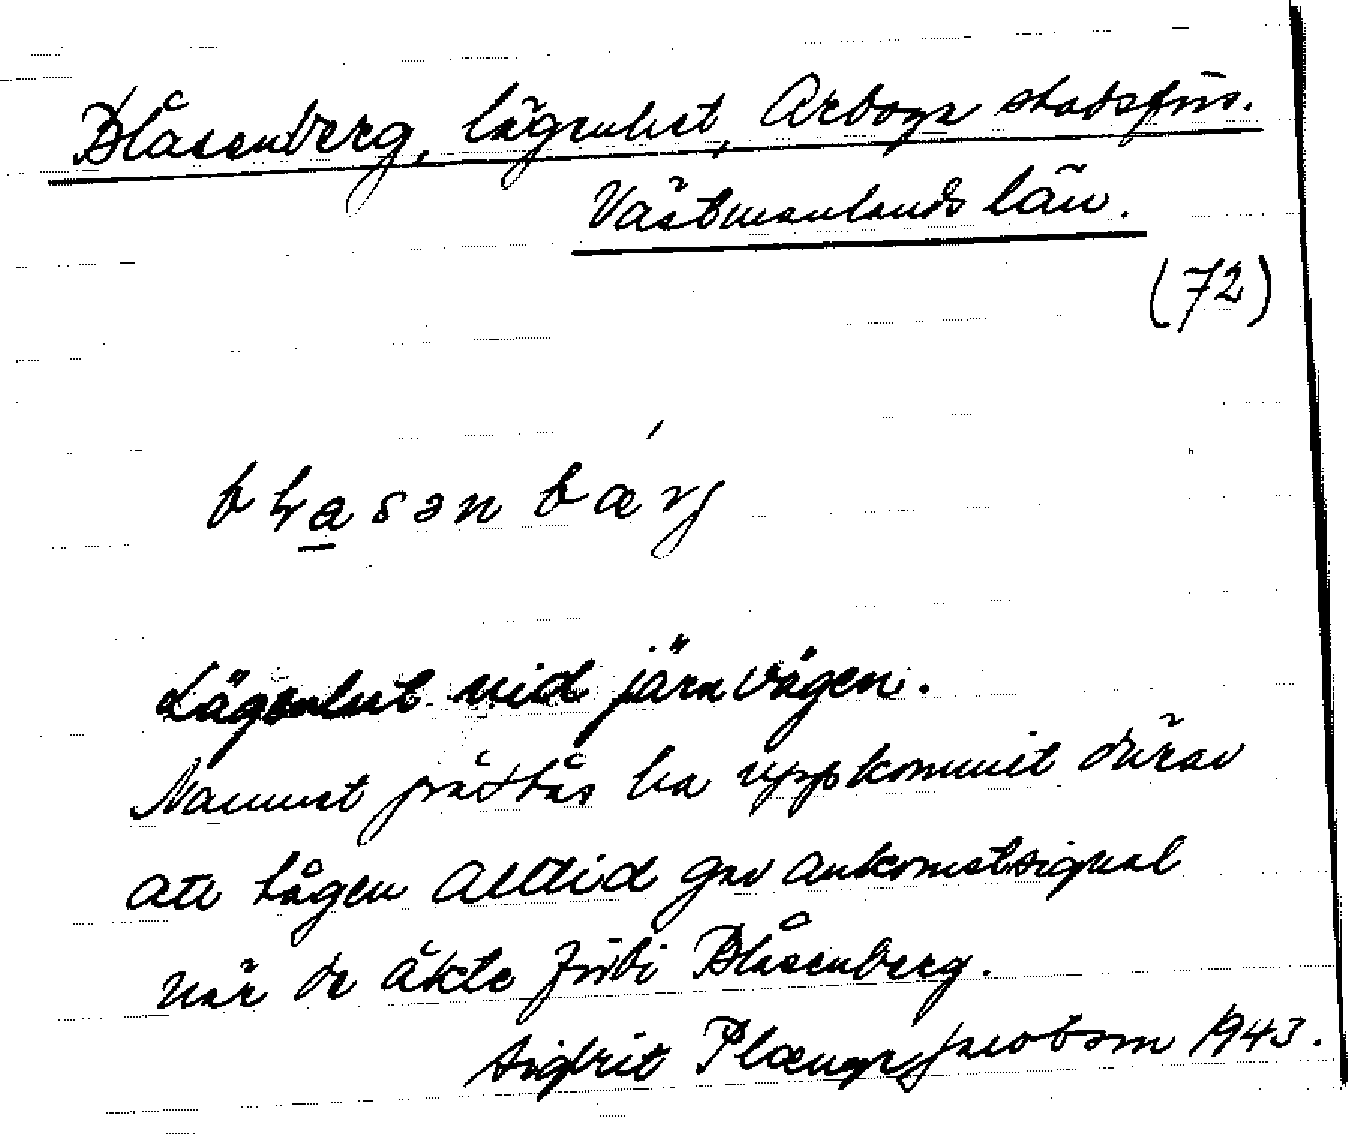 Blåsenberg, lägenhet, Arboga stadsförs.
Västmanlands län.
(72)
blasənbærj
Lägenhet vid järnvägen.
Namnet påstås ha uppkommit därav
att tågen alltid gav ankomstsignal
när de åkte förbi Blåsenberg.
Sigbrit Plænge Jacobson 1943.